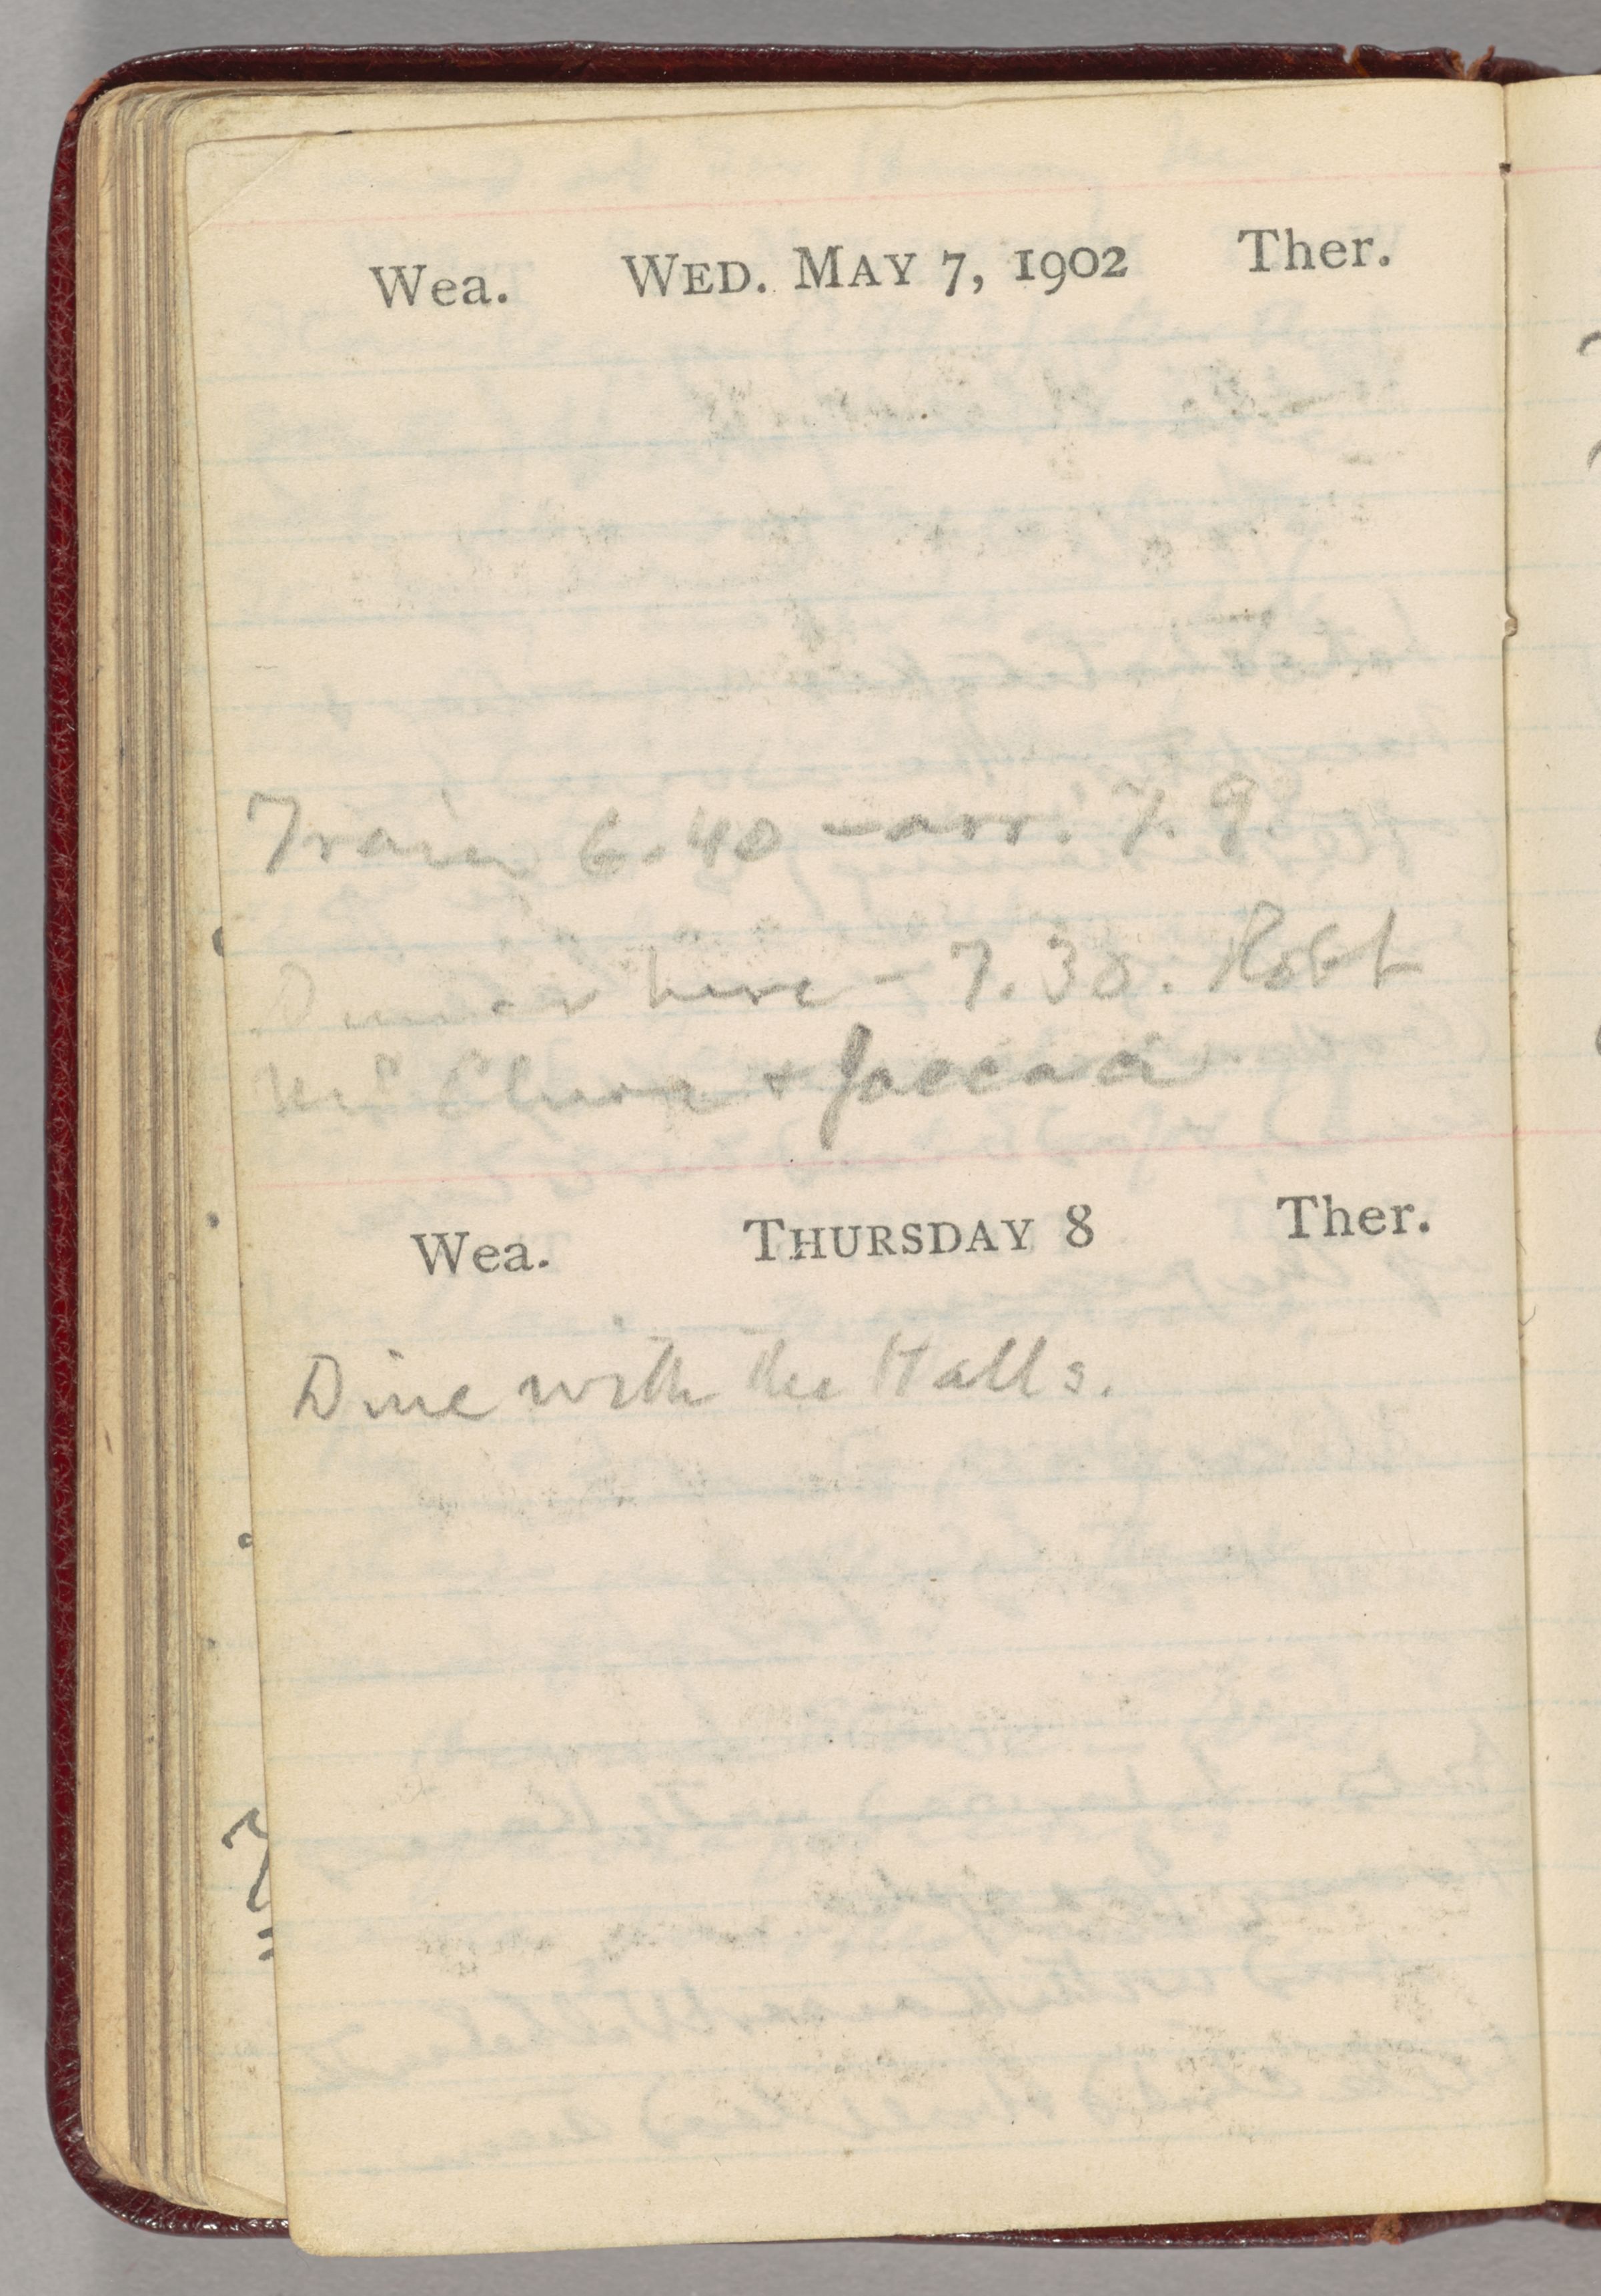 Wea. WED. MAY 7, 1902 Ther.
Train 6.40 – arr. 7.9.
Dinner here – 7.30. Robt
McClure + Jaccaci
Wea. THURSDAY 8 Ther.
Dine with the Halls.